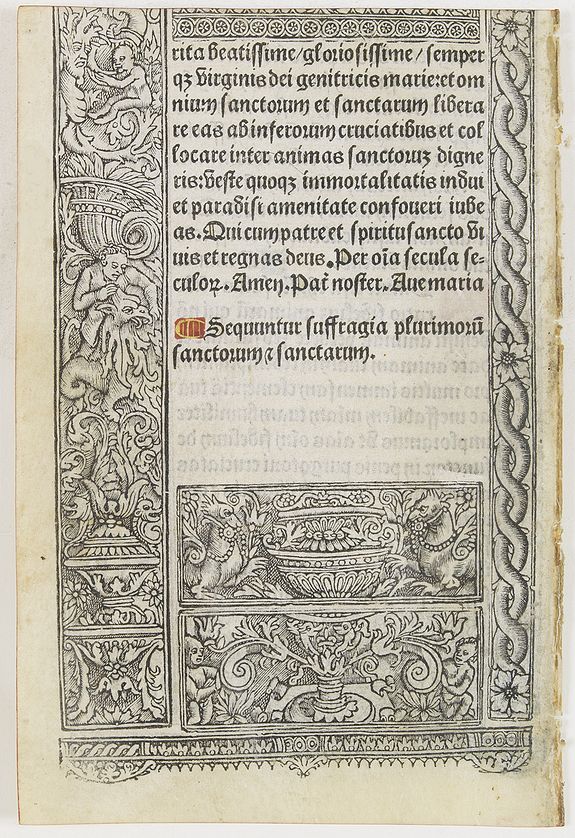 rita beatissime/gloriosissime/semper
qꝫ virginis dei genitricis marie:et om
nium sanctorum et sanctarum libera
re eas ab inferorum cruciatibus et col
locare inter animas sanctoruꝫ digne
ris:veste quoqꝫ immortalitatis indui
et paradisi amenitate confoueri iube
as. Qui cum patre et spiritu sancto vi
uis et regnas deus. Per oīa secula se-
culoꝝ. Amen. Pat̄ noster. Aue maria
Sequuntur suffragia plurimorū
sanctorum ⁊ sanctarum.